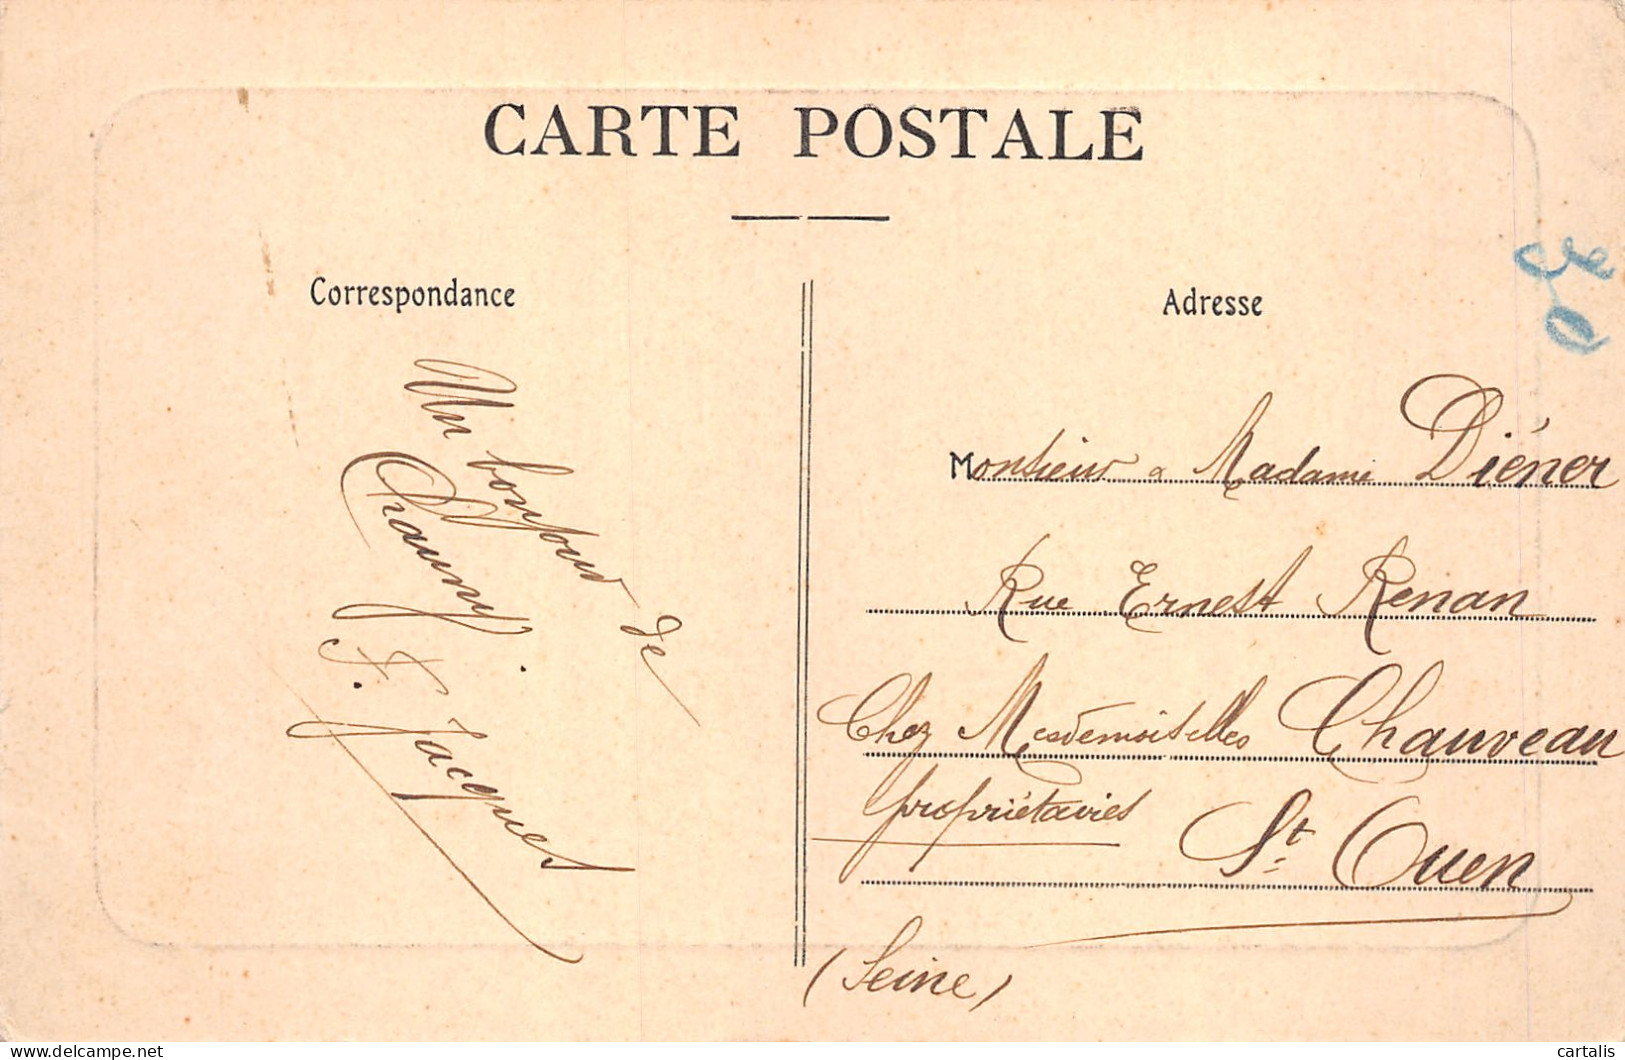 CARTE POSTALE
Correspondance
Un bonjour de
Chauny.
F. Jacquet
Adresse
Monsieur & Madame Diéner
Rue Ernest Renan
Chez Mesdemoiselles Chauveau
propriétaires
St Ouen
(Seine)
www.delcampe.net
cartalis